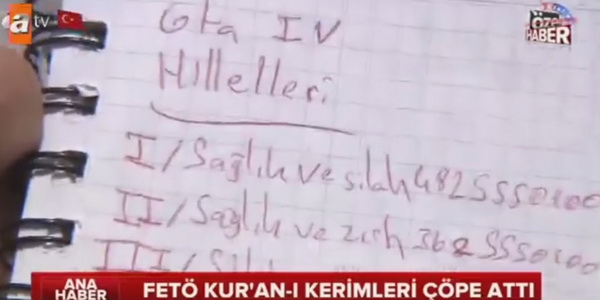 atv
ÖZEL HABER
Gta IV
Hilleleri
I/Sağlık ve silah 4825550100
II/Sağlık ve zırh 3625550100
III/
ANA HABER
FETÖ KUR'AN-I KERİMLERİ ÇÖPE ATTI